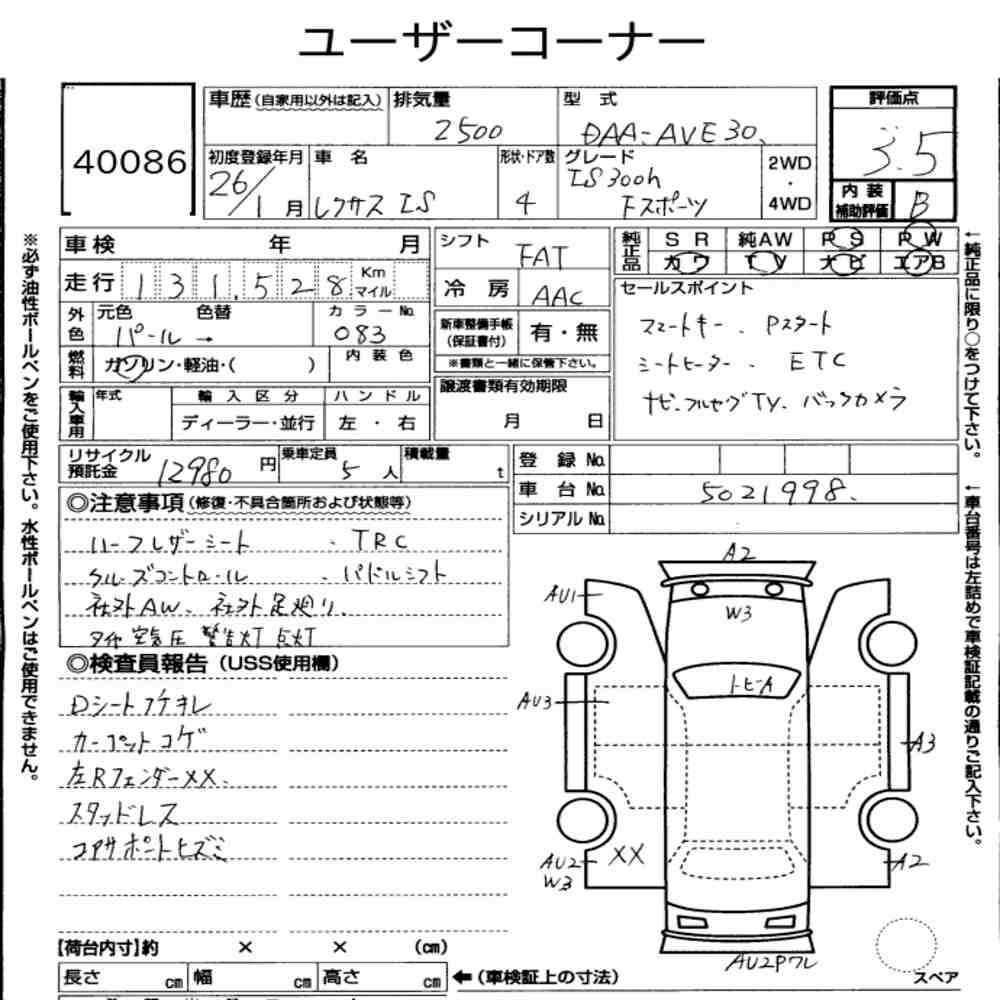 ユーザーコーナー
40086
車歴 (自家用以外は記入)
排気量
2500
型 式
DAA-AVE30
評価点
3.5
内装
補助評価
B
初度登録年月
26/1月
車 名
レクサス IS
形状・ドア数
4
グレード
IS300h
Fスポーツ
2WD
・
4WD
車検 年 月
走行 131,528 Km
マイル
外色
元色 色替
パール→
カラーNo.
083
燃料
ガソリン・軽油・( )
内装色
輸入車用
年式
輸入区分
ディーラー・並行
ハンドル
左・右
シフト
FAT
冷房
AAC
新車整備手帳
(保証書付)
有・無
※書類と一緒に保管下さい。
譲渡書類有効期限
月 日
純正品
SR 純AW PS PW
カワ TV ナビ エアB
セールスポイント
スマートキー. Pスタート
シートヒーター. ETC
ナビ.フルセグTV. バックカメラ
リサイクル
預託金
12980円
乗車定員
5人
積載量
t
登録No.
車台No. 5021998.
シリアルNo.
◎注意事項(修復・不具合箇所および状態等)
ハーフレザーシート . TRC
クルーズコントロール . パドルシフト
社外AW. 社外足廻り.
タイヤ空気圧 警告灯 点灯
◎検査員報告 (USS使用欄)
Dシートフチキレ
カーペットコゲ
左Rフェンダーxx.
スタッドレス
コアサポートヒズミ
A2
AU1
W3
トビA
AU3
A3
AU2
W3
XX
A2
AU2Pワレ
スペア
【荷台内寸】約 × × (cm)
長さ cm 幅 cm 高さ cm ←(車検証上の寸法)
※必ず油性ボールペンをご使用下さい。水性ボールペンはご使用できません。
←純正品に限り○をつけて下さい。
←車台番号は左詰めで車検証記載の通りご記入下さい。